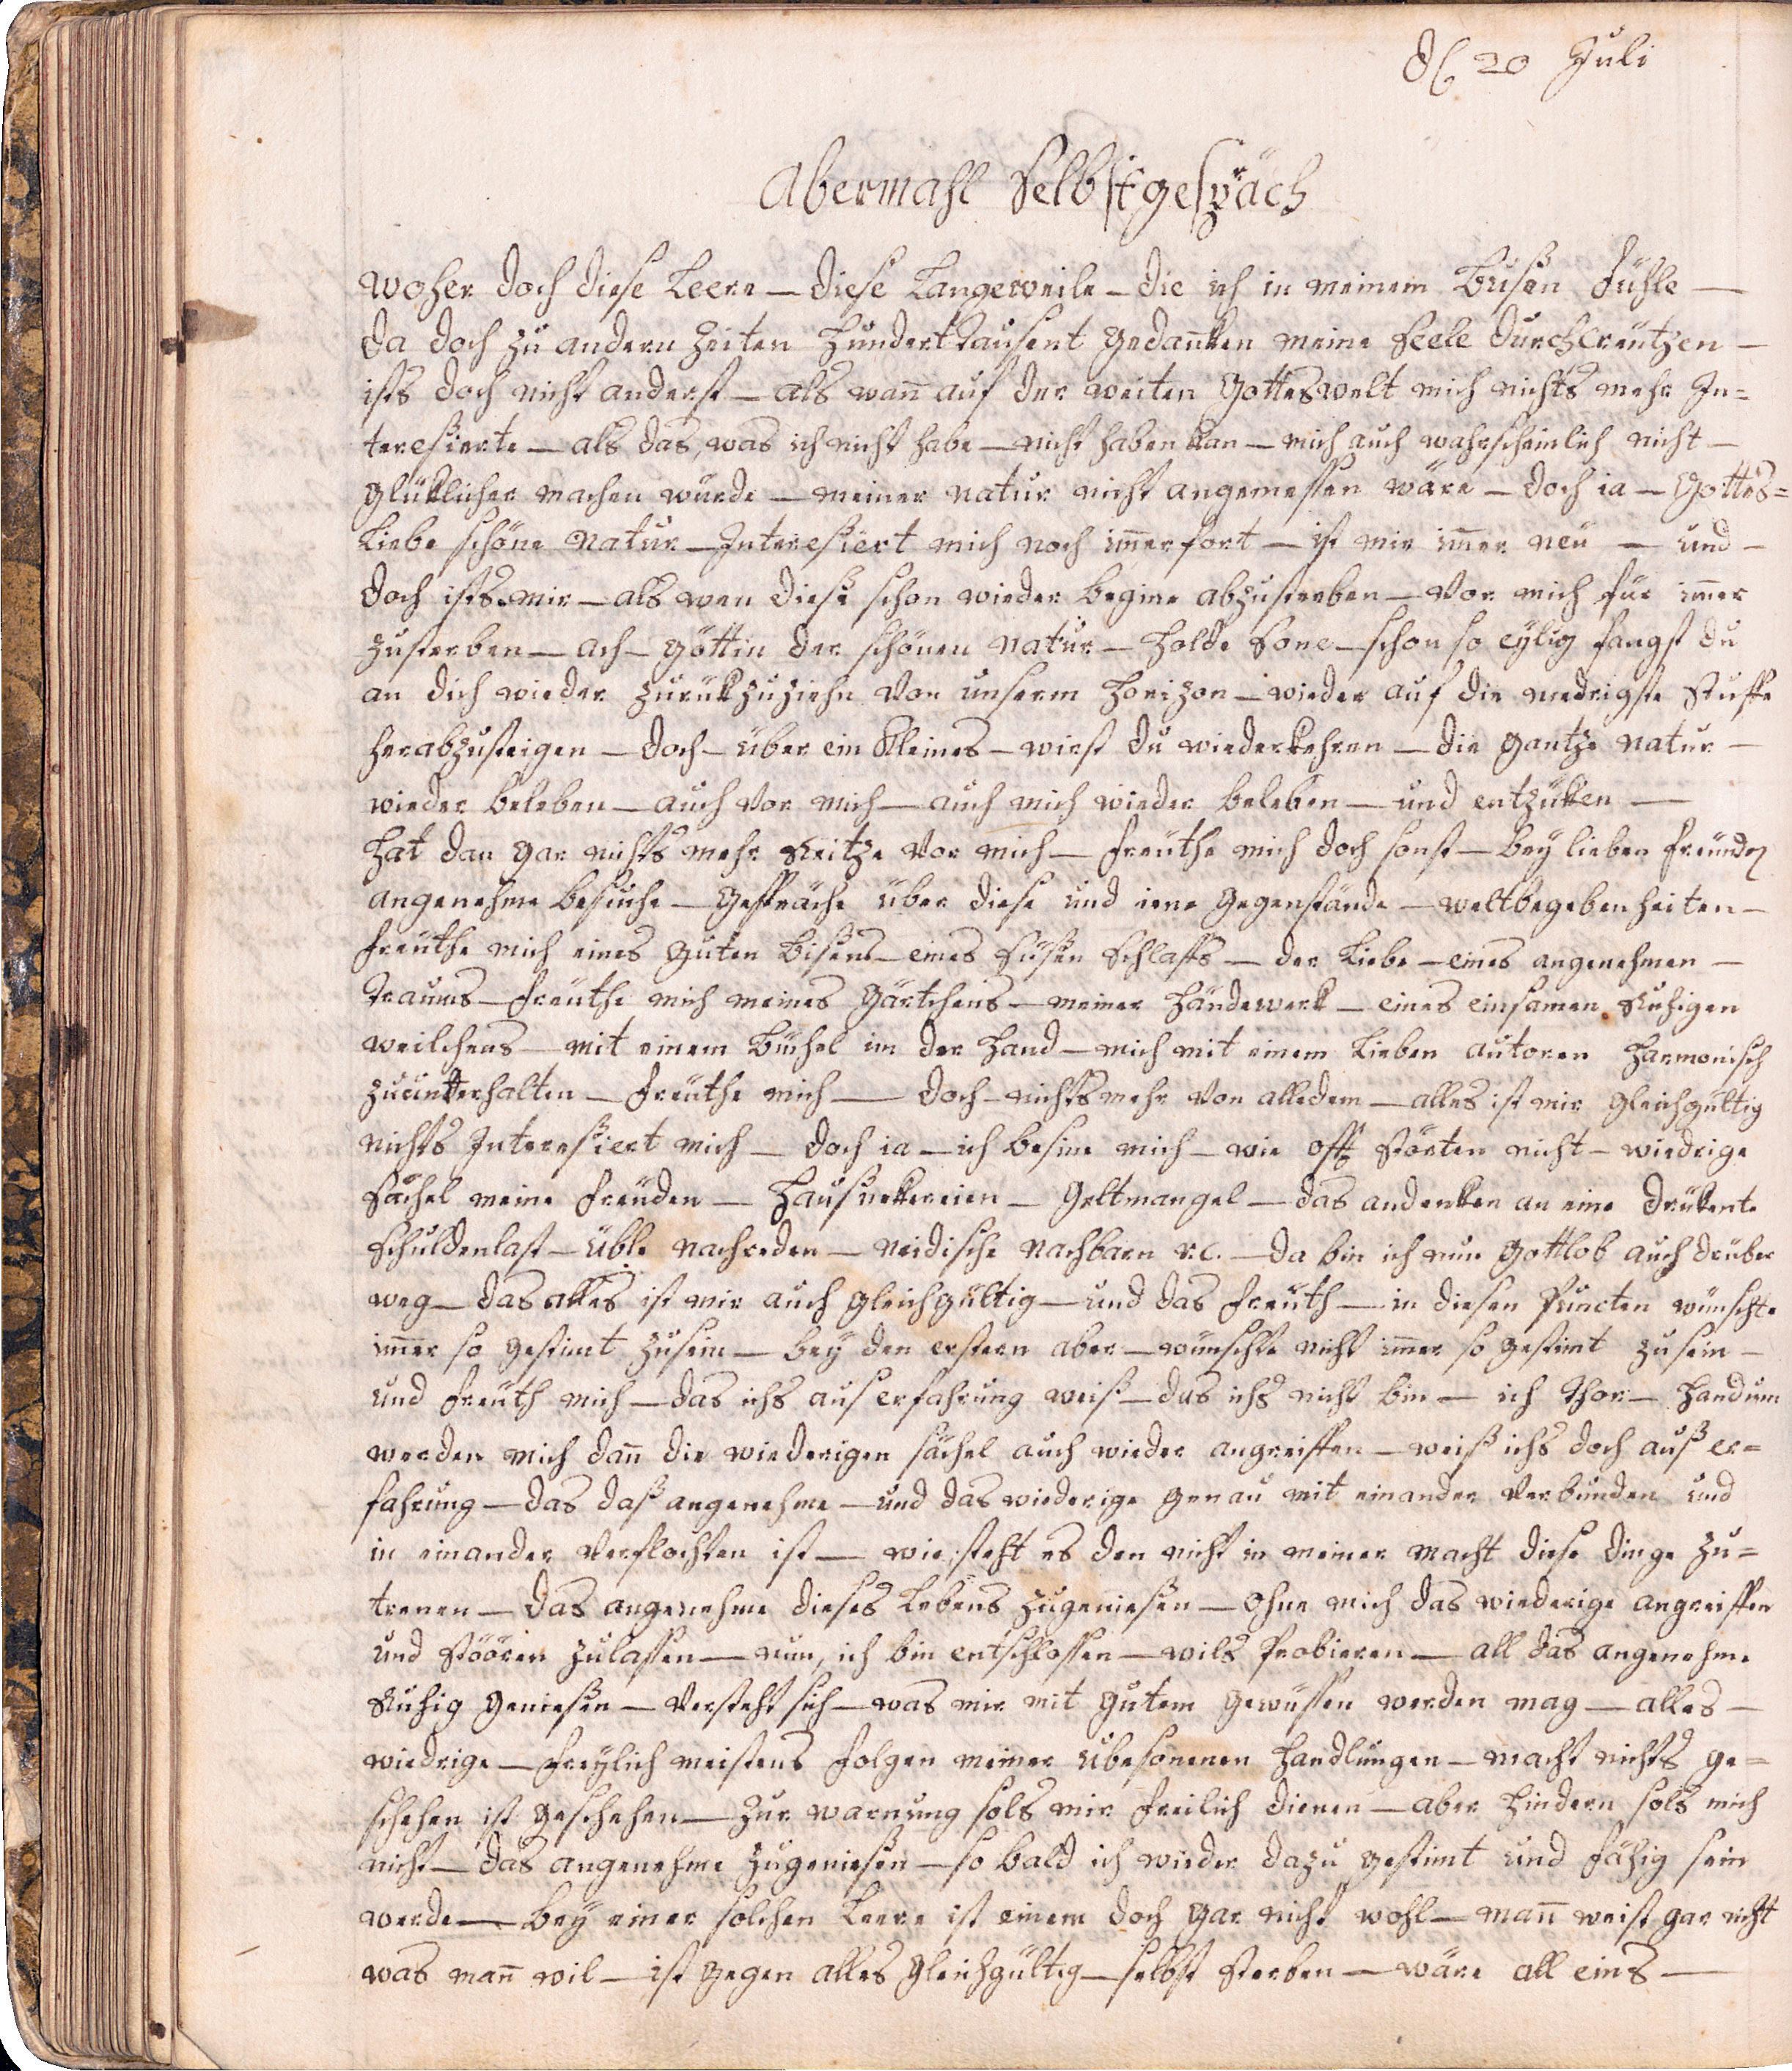 d 20 Juli
Abermahl Selbstgespräch
woher doch diese Leere — diese Langeweile — die ich in meinem Busen fühle —
da doch zu andern zeiten hundert tausent gedanken meine seele durchcreützen —
ists doch nicht anderst — als wañ auf der weiten Gotteswelt mich nichts mehr In=
teresierte — als das, was ich nicht habe — nicht haben kan — mich auch wahrscheinlich nicht —
glüklicher machen würde — meiner natur nicht angemessen wäre — doch ia — Gottes=
Liebe schöne natur — Interesiert mich noch im̄erfort — ist mir im̄er neü — und —
doch ists mir — als wen diese schon wieder begine abzusterben — vor mich für im̄er
zusterben — ach — göttin der schönen natur — holde sone — schon so eylig fangst du
an dich wieder zurükzuziehn von unserm horizon — wieder auf die niedrigste stuffe
herabzusteigen — doch — über ein kleines — wirst du wiederkehren — die gantze natur —
wieder beleben — auch vor mich — auch mich wieder beleben — und entzüken —
hat dan gar nichts mehr reitze vor mich — freüthe mich doch sonst — bey lieben freünden
angenehme besuche — gespräche über diese und iene gegenstände — weltbegebenheiten —
freüthe mich eines guten bisens — eines süsen schlaffs — der liebe — eines angenehmen —
traums — freüthe mich meines gärtchens — meiner händewerk — eines einsamen ruhigen
weilchens — mit einem büchel in der hand — mich mit einem lieben autoren harmonisch
zuunterhalten — freüthe mich — doch — nichts mehr von alledem — alles ist mir gleichgültig
nichts Interesiert mich — doch ia — ich besine mich — wie offt störten nicht — wiedrige
sächel meine freüden — hausnekereien — geltmangel — das andenken an eine drükente
schuldenlast — üble nachreden — neidische nachbarn rc. — da bin ich nun gottlob auch drüber
weg — das alles ist mir auch gleichgültig — und das freüth — in diesen puncten wünschte
im̄er so gestimt zusein — bey den erstern aber — wünschte nicht im̄er so gestimt zusein —
und freüth mich — das ichs aus erfahrung weiß — das ichs nicht bin — ich thor — handum
werden mich dañ die wiederigen sächel auch wieder angreiffen — weiß ichs doch auß er=
fahrung — das daß angenehme — und das wiederige genau mit einander verbunden und
in einander verflochten ist — wie, steht es den nicht in meiner macht diese dinge zu=
trenen — das angenehme dieses lebens zugeniesen — ohne mich das wiederige angreiffen
und stöören zulassen — nun, ich bin entschlossen — wils probieren — all das angenehme
ruhig geniesen — versteht sich — was mir mit gutem gewüssen werden mag — alles —
wiedrige — freylich meistens folgen meiner ubesonenen handlungen — macht nichts ge=
schehen ist geschehen — zur warnung sols mir freilich dienen — aber hindern sols mich
nicht — das angenehme zugeniesen — so bald ich wieder dazu gestimt und fähig sein
werde — bey einer solchen leere ist einem doch gar nicht wohl — mañ weist gar nicht
was mañ wil — ist gegen alles gleichgültig — selbst sterben — wäre all eins —